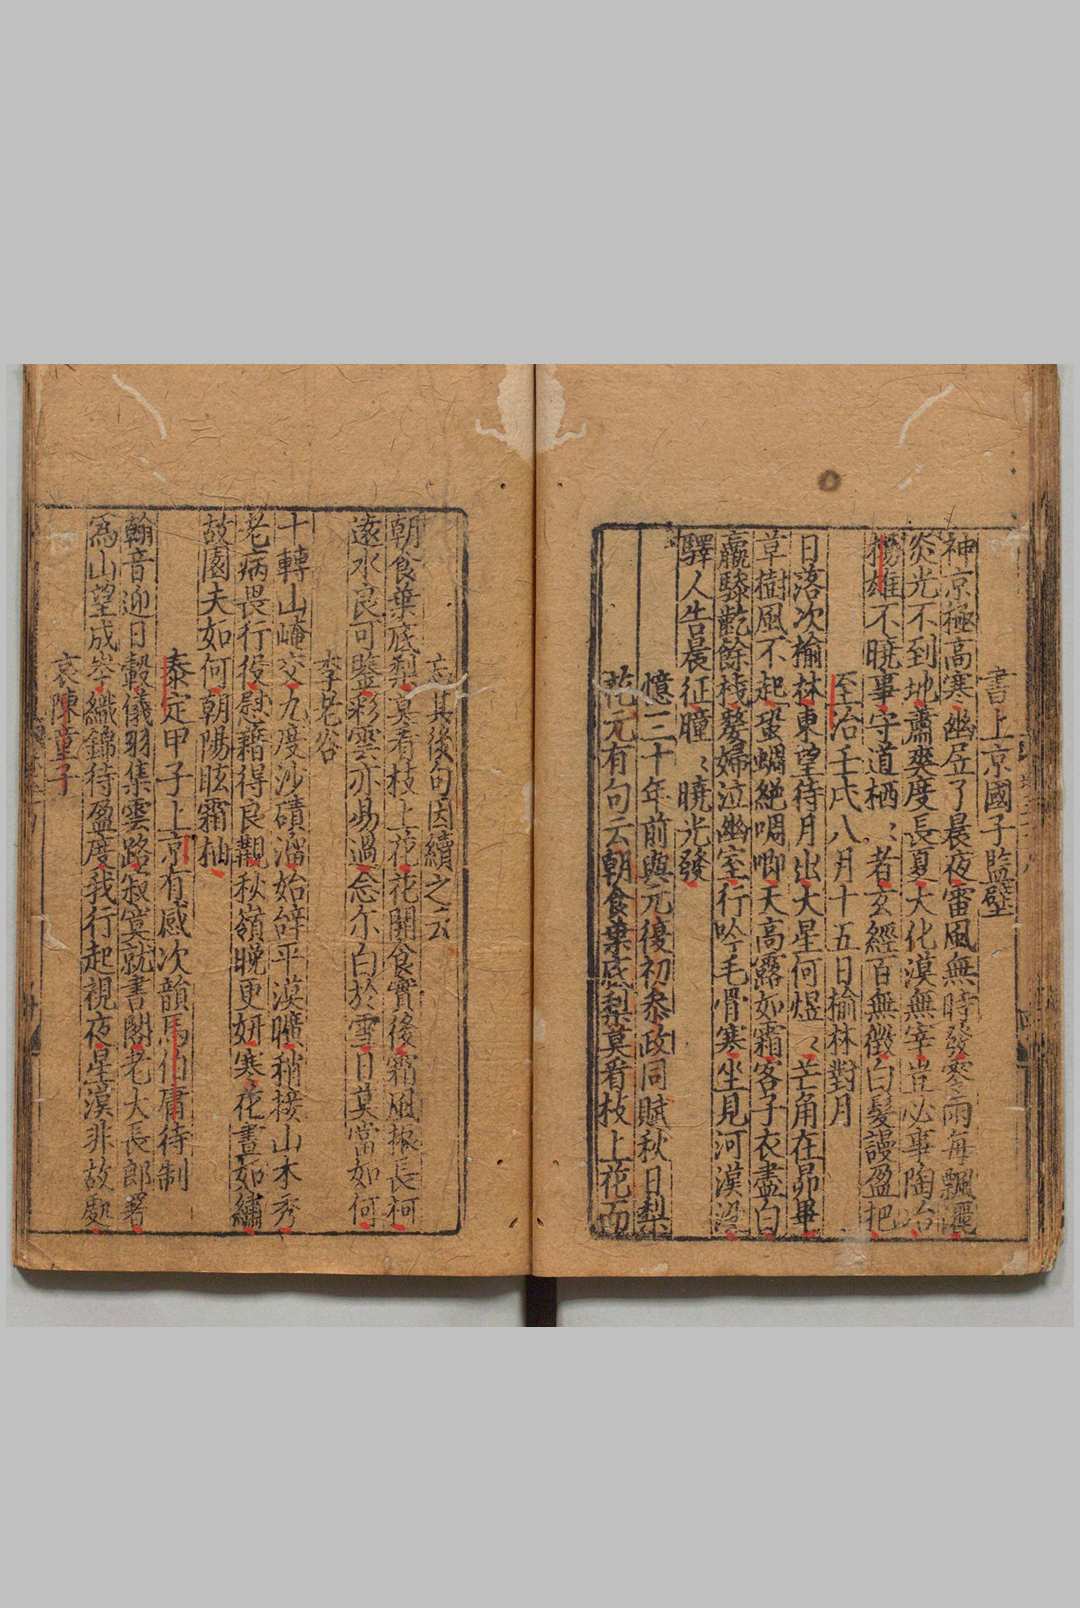 書上京國子監壁
神京極高寒幽居了晨夜畨風無時發零雨每飄灑
炎光不到地蕭爽度長夏大化漠無宰豈必事陶冶
楊雄不曉事守道栖〻者玄經百無徵白髮謾盈把
至治壬戌八月十五日榆林對月
日落次榆林東望待月出大星何煜〻芒角在昴畢
草樹風不起蛩蜩絶啁唧天高露如霜客子衣盡白
羸驂齕餘棧嫠婦泣幽室行吟毛骨寒坐見河漢沒
驛人告晨征瞳〻曉光發
憶三十年前與元復初叅政同賦秋日梨
花元有句云朝食葉底梨莫看枝上花而
忘其後句因續之云
朝食葉底梨莫看枝上花花開食實後霜風振長柯
遠水良可鑒彩雲亦易過念尓白於雪日莫當如何
李老谷
十轉山崦交九度沙磧溜始辝平漠曠稍接山木秀
老病畏行役慰藉得良覯秋嶺晚更妍寒花晝如繡
故園夫如何朝陽眩霜柚
泰定甲子上京有感次韻馬伯庸待制
翰音迎日轂儀羽集雲路寂寞就書閣老大長郎署
為山望成岑織錦待盈度我行起視夜星漢非故處
哀陳童子